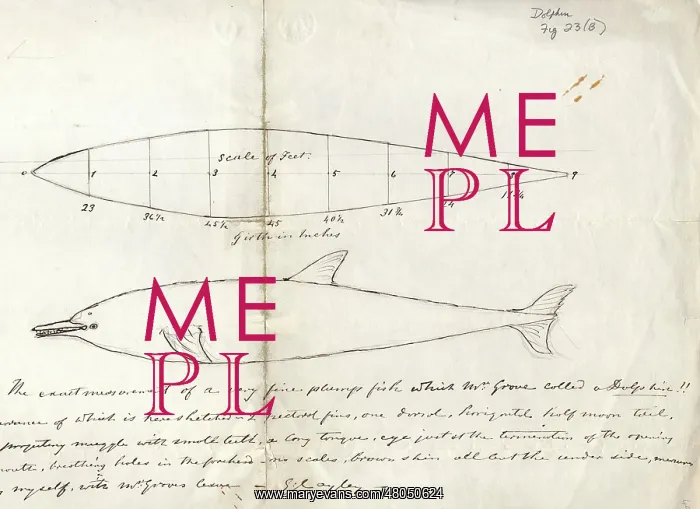 Dolphin
Fig 23(B)
ME
PL
Scale of Feet.
0 1 2 3 4 5 6 7 8 9
23 36½ 45½ 45 40½ 31¾ 24
Girth in Inches
ME
PL
The exact measurement of a very fine plump fish which Mr. Grove called a Dolphin!!
of which is here sketched - 2 pectoral fins, one dorsal, horizontal half moon tail,
muzzle with small teeth, a long tongue, eye just at the termination of the opening
mouth, breathing holes in the forehead - no scales, brown skin all but the under side,
myself, with Mr. Groves leave - G. Cayley
www.maryevans.com/48050624